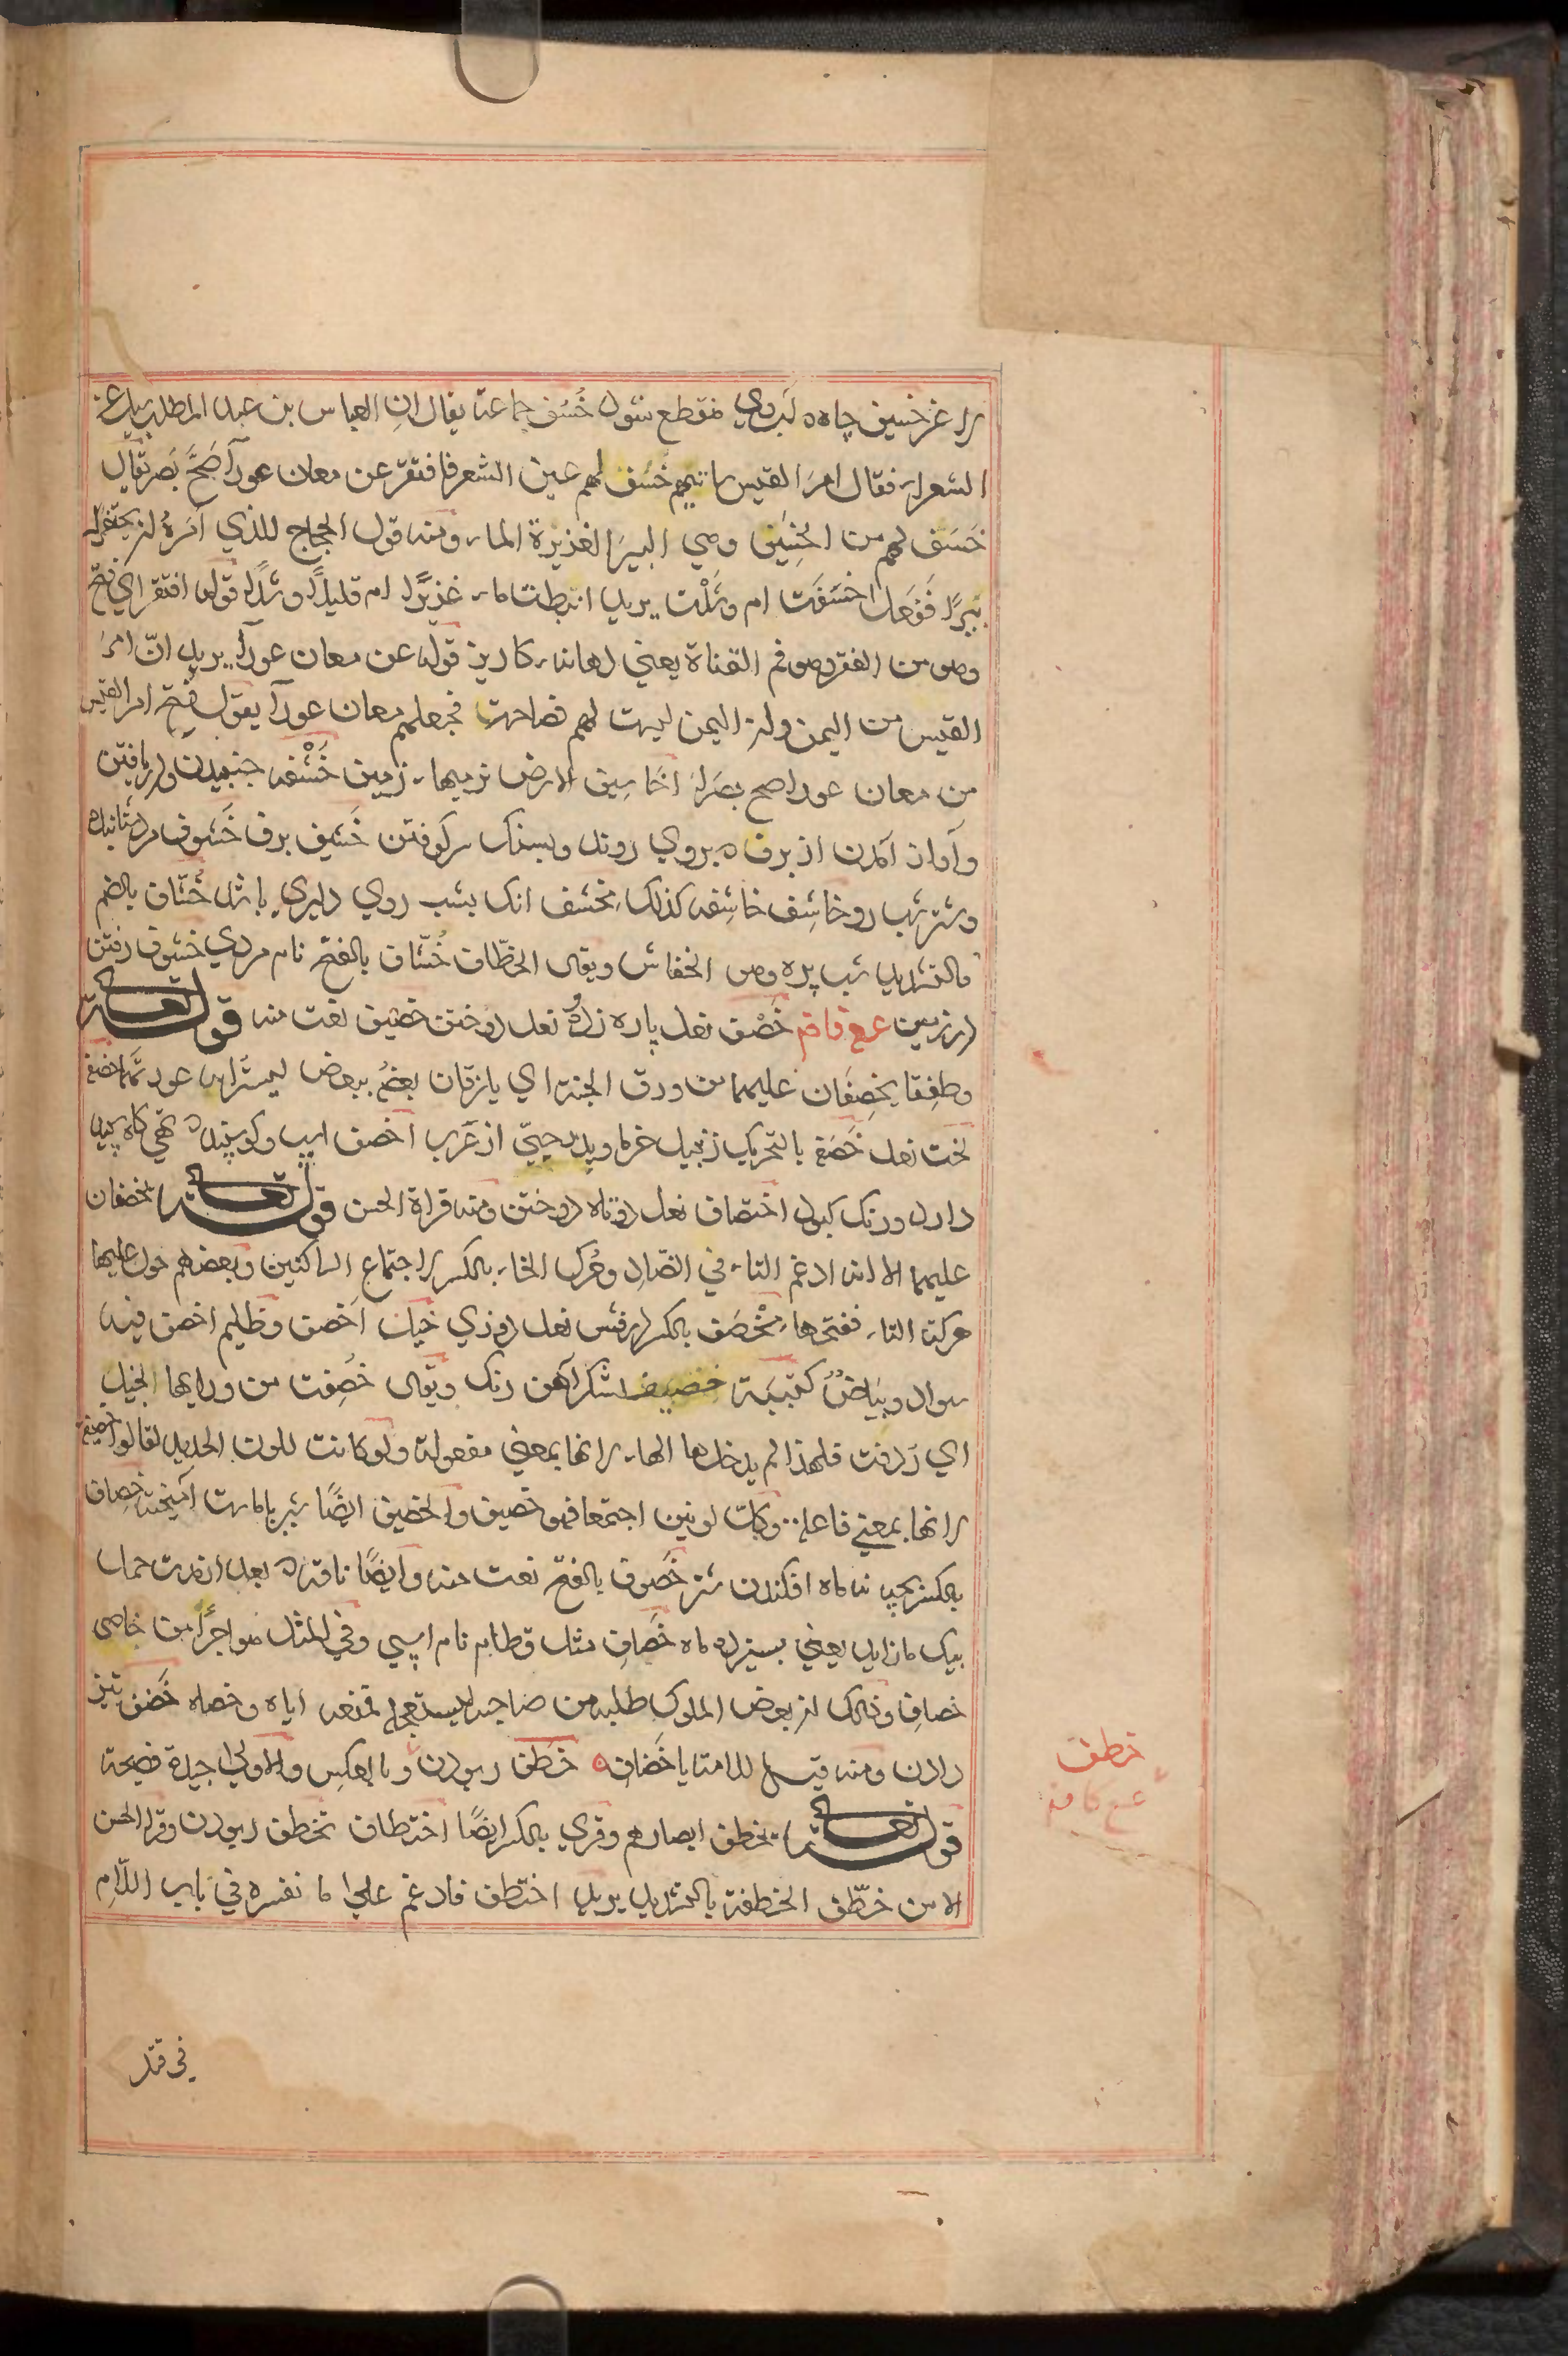 لاغر خسيف چاهى كه بروى منقطع نشود خُسُف جماعة يقال ان العباس بن عبد المطلب سئل عن
الشعراء فقال امرَا القيس سابقهم خَسَف لهم عين الشعر فافتقر عن معان عورٍ اَصَحَّ بَصَرٍ يقال
خَسَف لهم من الخَسِيف وهي البير الغزيرة الماء ومنه قول الحجاج للذي اَمَرهُ ان يحتفر له
بيرًا فَفَعل اخسَفتَ ام وشَلْت يريد انبطت ماء غزيرًا ام قليلًا وشلًا قوله افتقر اي فتح
وهو من الفقر وهو فم القناة يعني دهانه كاريز قوله عن معان عورٍ يريد انّ امرَ
القيس من اليمن وان اليمن ليست لهم فصاحة فجعلهم معان عورا يقول فتح امر القيس
من معان عور اصح بصرًا اخاسيف الارض نرمها زمين خَشْفه جنبيدن و دريافتن
وآواز آمدن از برف كه بروي روند وبسنك سر كوفتن خَشيف برف خَشوف مرد شتابنده
وشتر شب رو خاشِف خاشِفه كذلك مِخشف انك بشب روي دليري باشد خُشّاف بالضم
والتشديد شب پره وهو الخفاش ويقال الخطّاف خَشّاف بالفتح نام مردي خشوف رفتن
در زمين ع ع فافه خَصْف نعل پاره زدن نعل دوختن خصيف نعت منه قوله تعالى
وطفِقا يخصِفَان عليهما من ورق الجنة اي يلزقان بعضه ببعض ليستَرا به عورتهما خصفه
لخت نعل خَصَفه بالتحريك زنبيل خرما وپدر حييّ از عَرَب اخصف اسپ وكوسپند كه تهي كاه سپيد
دارد ورنك كبود اختصاف نعل دوتاه دوختن ومنه قراة الحسن قوله تعالى يخصفان
عليهما الا انه ادغم التاء في الصّاد وحُرك الخاء بالكسر لاجتماع الساكنين وبعضهم حول عليها
حركة التاء ففتحها مِخْصَف بالكسر درفش نعل دوزي خيل اَخصف وظليم اخصف فيه
سواد وبَيَاضٌ كتيبة خصيف لشكر آهن رنك ويقال خُصِفت من ورايها الخيل
اي رَدفت فلهذا لم يدخلها الهاء لانها بمعني مفعولة ولو كانت للون الحديد لقالوا خصيفة
لانها بمعني فاعلة وكلّ لونين اجتمعا فهو خصيف والخصيف ايضًا شير باماست آميخته خِصاف
بالكسر بچه نه ماه افكندن شتر خَصوف بالفتح نعت منه وايضًا ناقه كه بعد از مدت حمل
بيك ماه زايد يعني بسيزده ماه خَصافِ مثل قطام نام اسپي وفي المثل هو اجرَا من خاصي
خصافِ وذلك ان بعض الملوك طلبه من صاحبه ليستفحله فمنعه اياه وخصاه خَضف تيز
دادن ومنه قيل للامة يا خَضافِ خَطف ربودن و بالعكس والاولي جيدة فصيحة
قوله تعالى يخطف ابصارهم وقري بالكسر ايضًا اختطاف تخطف ربودن وقرا الحسن
الا من خطّف الخطفة بالتشديد يريد اختطف فادغم علي ما نفسره في باب اللّام
خطف
ع ع كافه
في قتل